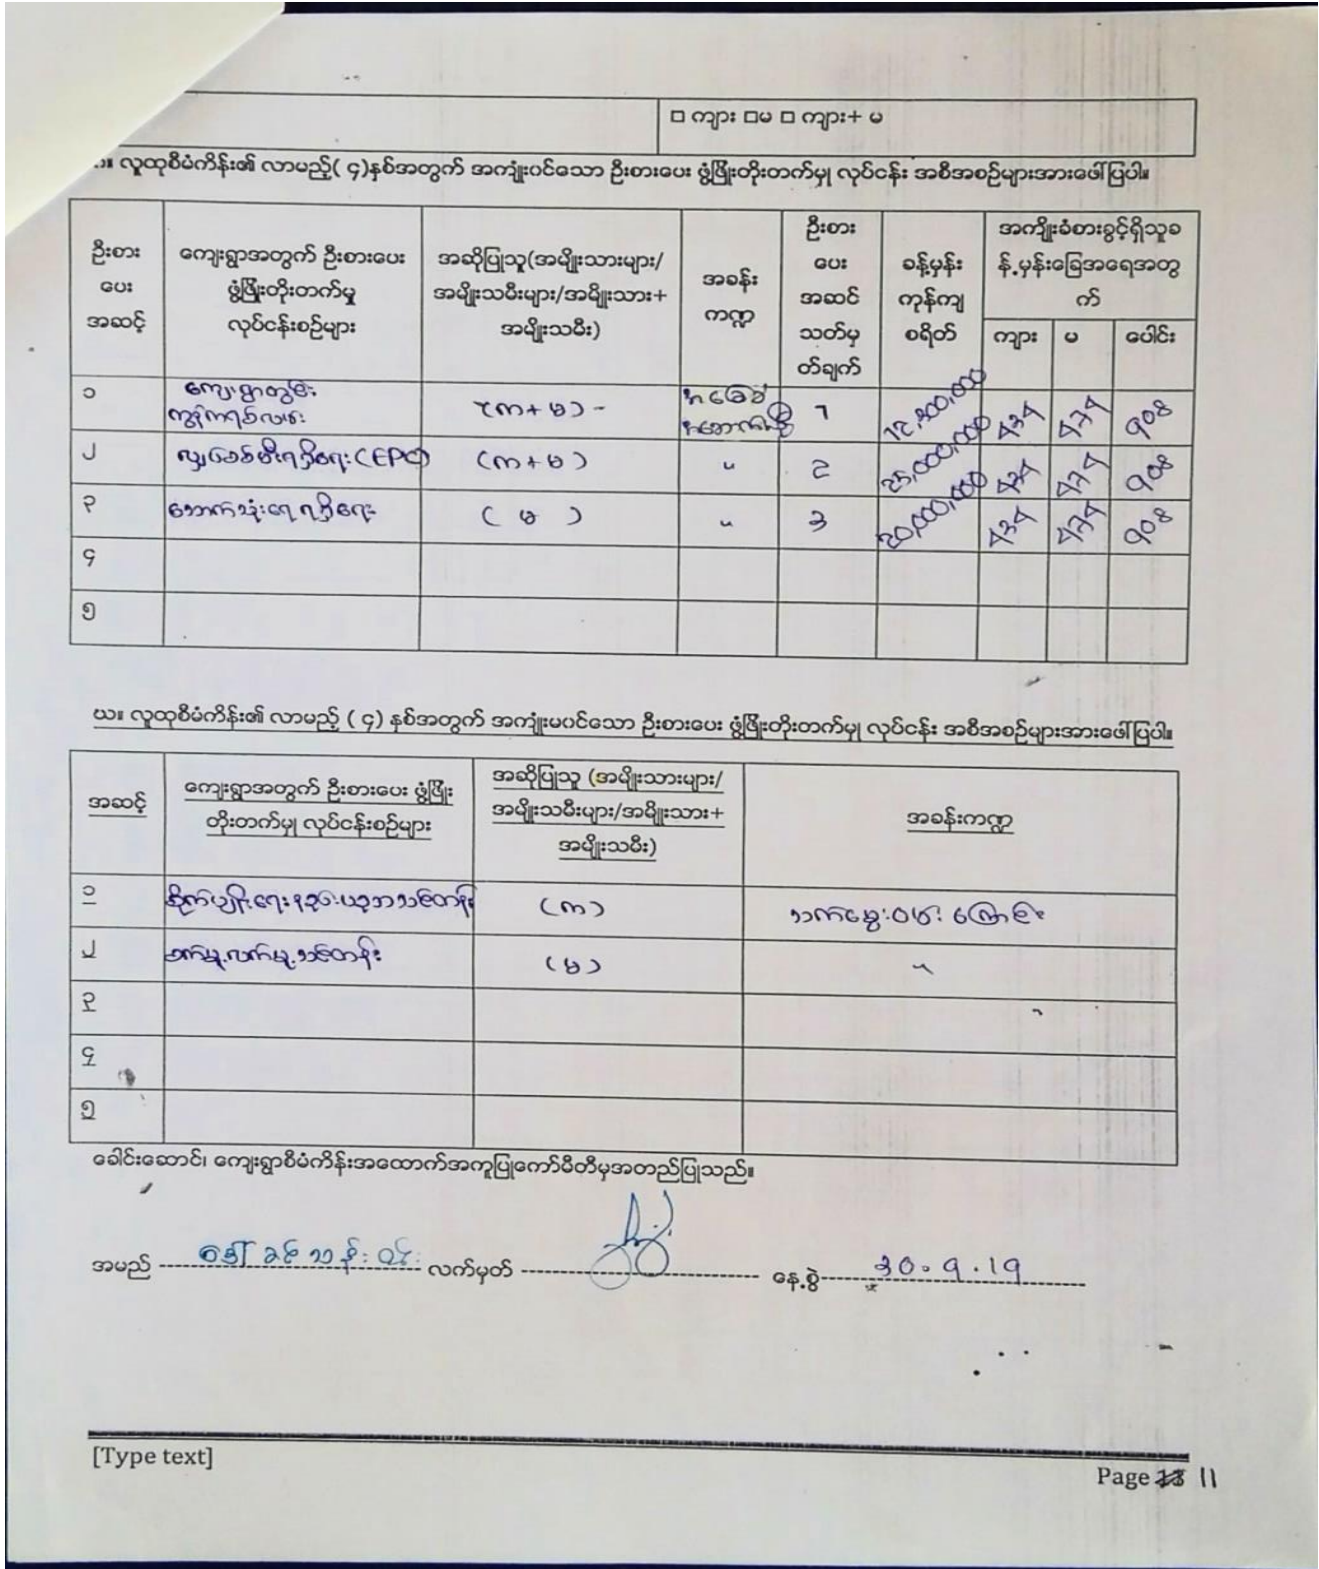 □ ကျား □မ □ ကျား+ မ
။ လူထုစီမံကိန်း၏ လာမည့်( ၄)နှစ်အတွက် အကျုံးပင်သော ဦးစားပေး ဖွံ့ဖြိုးတိုးတက်မှု လုပ်ငန်း အစီအစဉ်များအားဖေါ်ပြပါ။
ဦးစား ပေး အဆင့်
ကျေးရွာအတွက် ဦးစားပေး ဖွံ့ဖြိုးတိုးတက်မှု လုပ်ငန်းစဉ်များ
အဆိုပြုသူ(အမျိုးသားများ/ အမျိုးသမီးများ/အမျိုးသား+ အမျိုးသမီး)
အခန်း ကဏ္ဍ
ဦးစား ပေး အဆင် သတ်မှ တ်ချက်
ခန့်မှန်း ကုန်ကျ စရိတ်
အကျိုးခံစားခွင့်ရှိသူခ န့်မှန်းခြေအရေအတွ က်
ကျား မ ပေါင်း
၁ ကျေးရွာတွင်း ကွန်ကရစ်လမ်း (က+မ) - အခြေခံ အဆောက်အဦ 1 434 474 908
၂ လျှပ်စစ်မီးရရှိရေး (EPC) (က+မ) " 2 25,000,000 434 474 908
၃ သောက်သုံးရေရရှိရေး ( မ ) " 3 20,000,000 434 474 908
၄
၅
ဃ။ လူထုစီမံကိန်း၏ လာမည့် ( ၄) နှစ်အတွက် အကျုံးမပင်သော ဦးစားပေး ဖွံ့ဖြိုးတိုးတက်မှု လုပ်ငန်း အစီအစဉ်များအားဖေါ်ပြပါ။
အဆင့်
ကျေးရွာအတွက် ဦးစားပေး ဖွံ့ဖြိုး တိုးတက်မှု လုပ်ငန်းစဉ်များ
အဆိုပြုသူ (အမျိုးသားများ/ အမျိုးသမီးများ/အမျိုးသား+ အမျိုးသမီး)
အခန်းကဏ္ဍ
၁ စိုက်ပျိုးရေးနည်းပညာသင်တန်း (က) သက်မွေးဝမ်းကြောင်း
၂ စက်မှု့လက်မှု့သင်တန်း (မ) "
၃
၄
၅
ခေါင်းဆောင်၊ ကျေးရွာစီမံကိန်းအထောက်အကူပြုကော်မီတီမှအတည်ပြုသည်။
အမည် ဒေါ်ခင်သန်းဝင်း လက်မှတ် နေ့စွဲ 30.9.19
[Type text]
Page 11